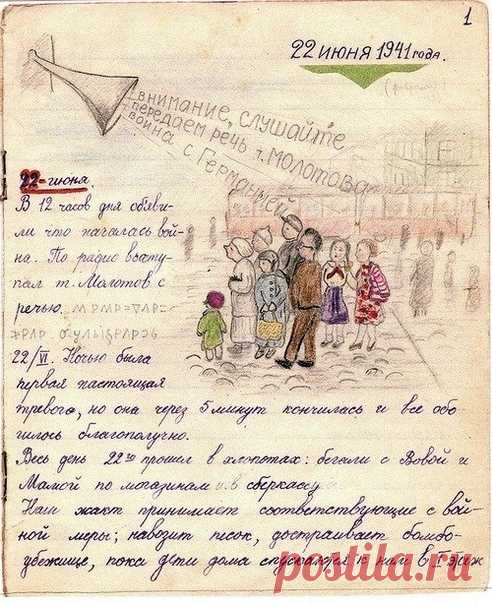 1
22 июня 1941 года.
внимание, слушайте
передаем речь т. Молотова
война с Германией
22-июня.
В 12 часов дня объяви-
ли что началась вой-
на. По радио высту-
пал т. Молотов с
речью.
22/VI. Ночью была
первая настоящая
тревога, но она через 5 минут кончилась и все обо-
шлось благополучно.
Весь день 22го прошел в хлопотах: бегали с Вовой и
Мамой по магазинам и в сберкассу
Наш жакт принимает соответствующие с вой-
ной меры; навозит песок, достраивает бомбо-
убежище, пока дети дома спускаются к нам в I этаж
postila.ru